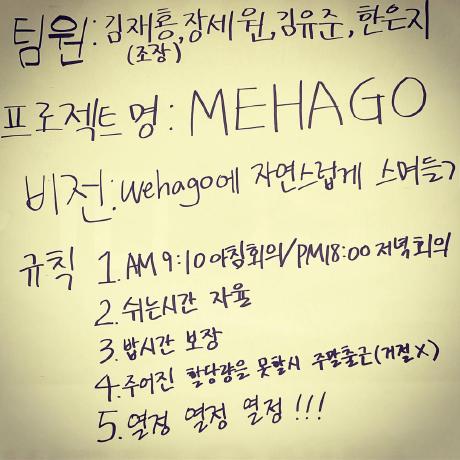 팀원: 김재홍, 장세원, 김유준, 한은지
(조장)
프로젝트명: MEHAGO
비전: wehago에 자연스럽게 스며들기
규칙 1. AM 9:10 아침회의/PM18:00 저녁회의
2. 쉬는시간 자율
3. 밥시간 보장
4. 주어진 할당량을 못할시 주말출근(거절X)
5. 열정 열정 열정 !!!